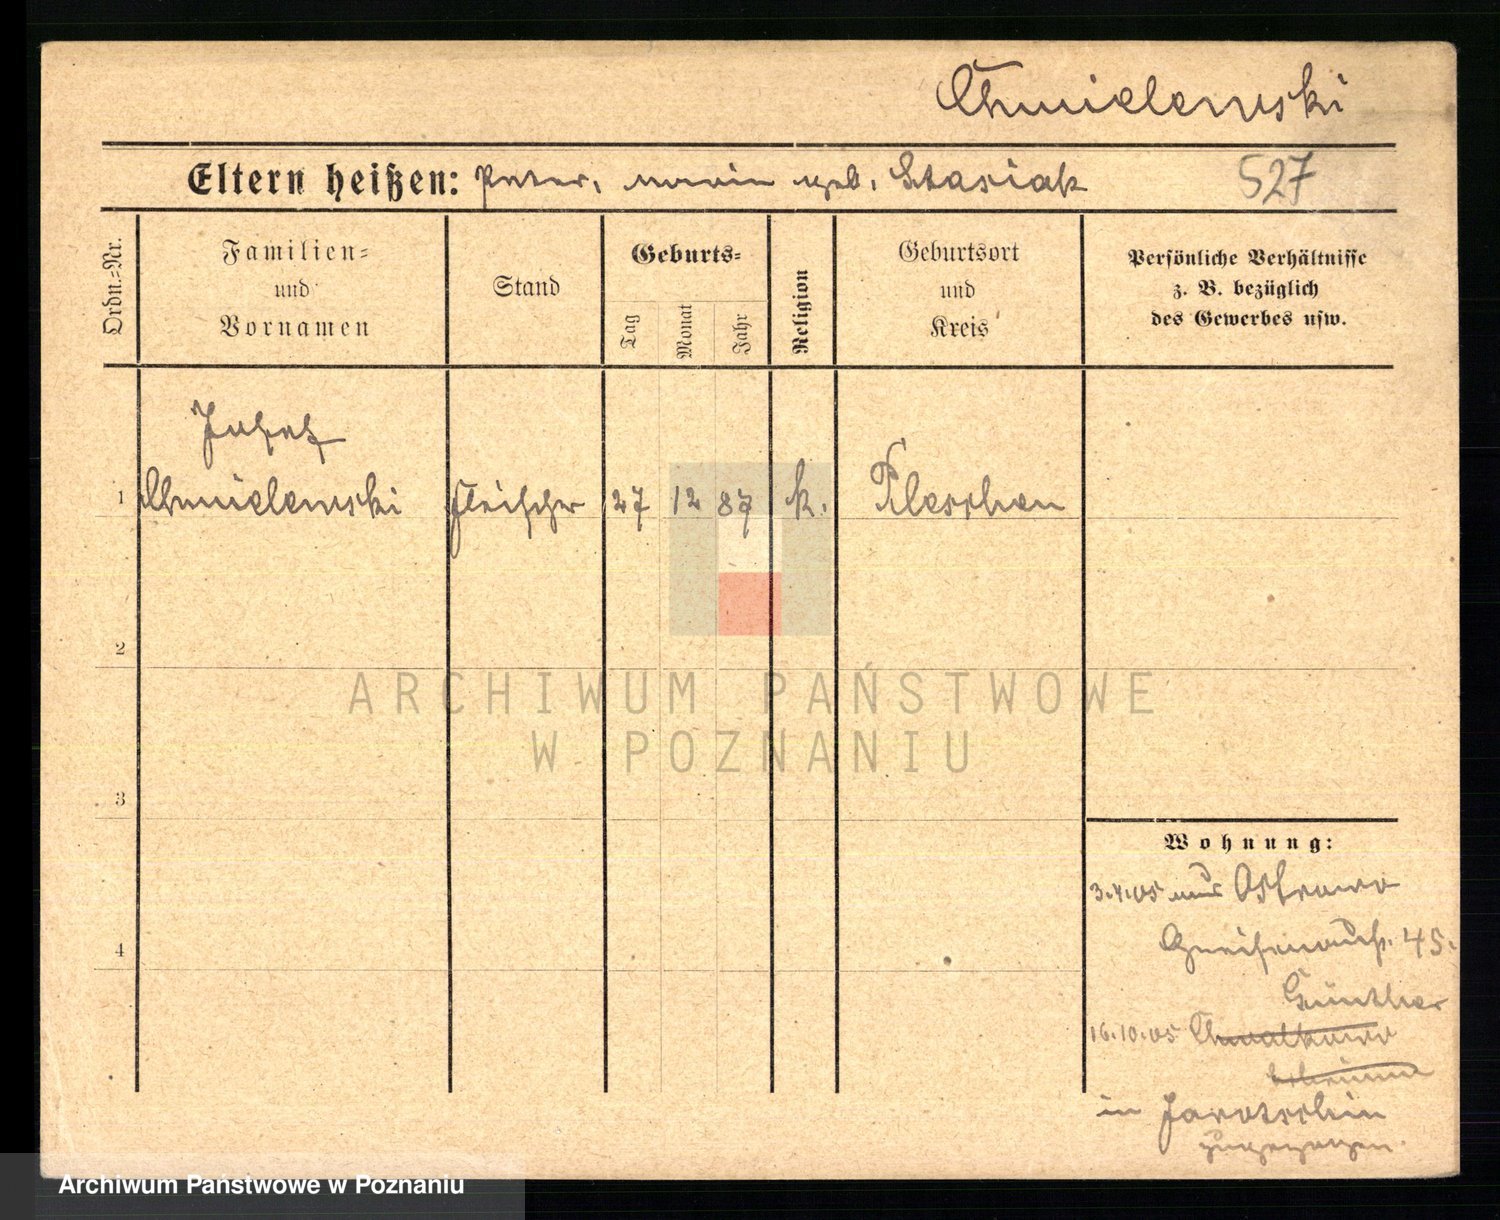 Chmielewski
Eltern heißen: Peter, Marie geb. Stasiak 527
Ordn.=Nr.
Familien=
und
Vornamen
Stand
Geburts=
Tag
Monat
Jahr
Religion
Geburtsort
und
Kreis
Persönliche Verhältnisse
z. B. bezüglich
des Gewerbes usw.
Josef
1 Chmielewski Fleischer 27 12 87 k. Pleschen
2
3
4
Wohnung:
3.4.05 aus Ostrowo
45.
Günther
16.10.05 Chwalkowo
in Jarotschin
zugezogen.
ARCHIWUM PAŃSTWOWE
W POZNANIU
Archiwum Państwowe w Poznaniu